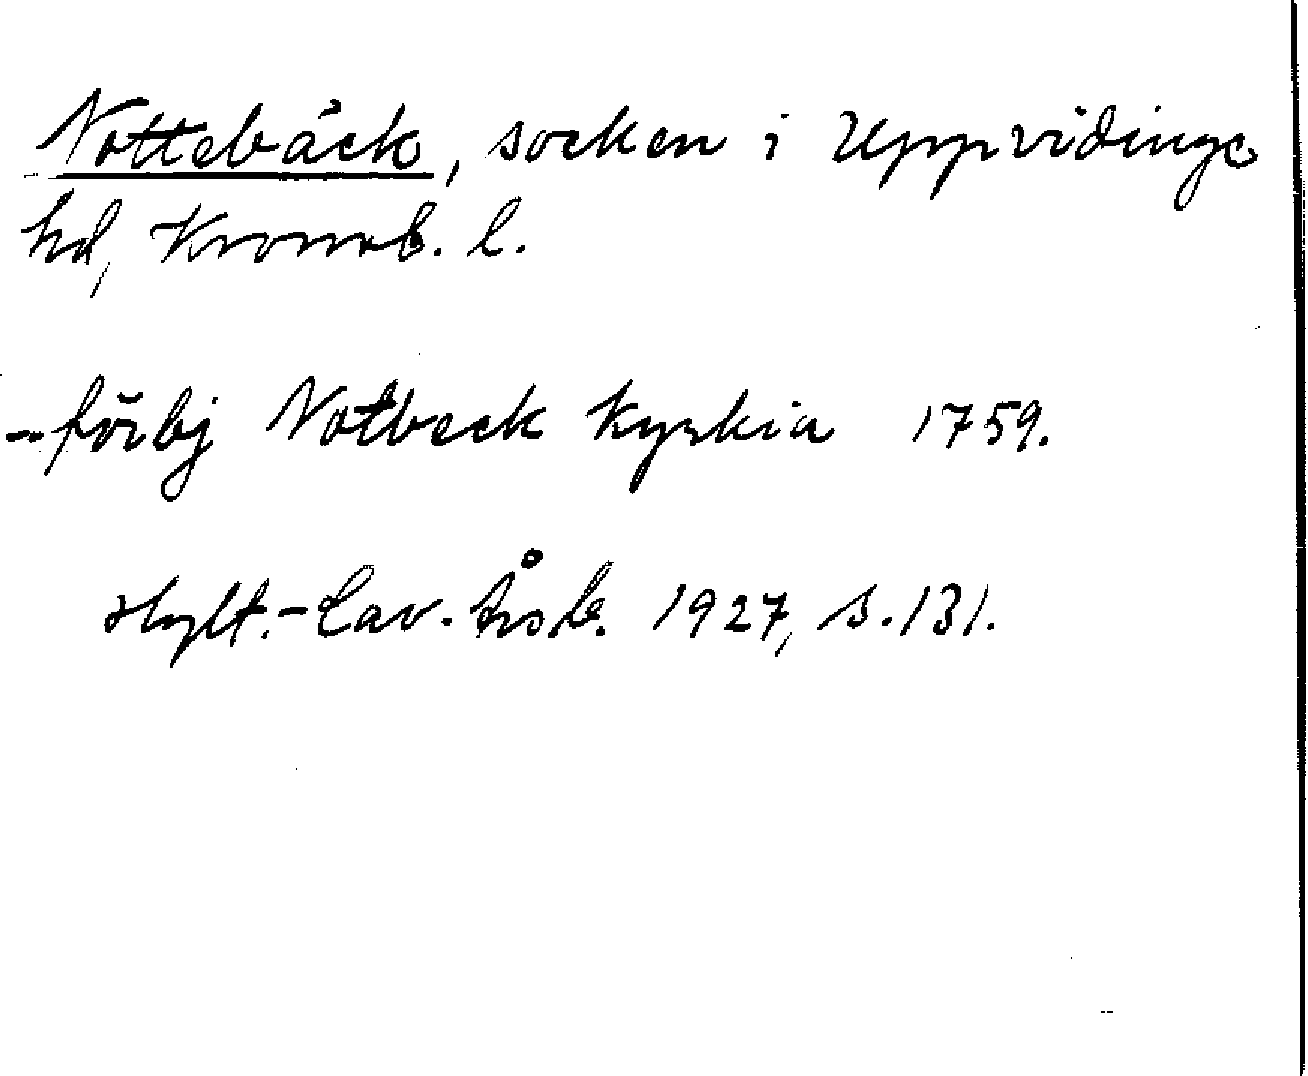 Nottebäck, socken i Uppvidinge
hd, Kronob. l.
- förbj Notbeck kyrkia 1759.
Hylt.-Cav. Årsb. 1927, s. 131.